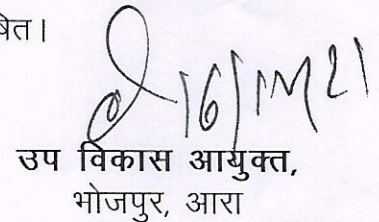 षित।
16/11/21
उप विकास आयुक्त,
भोजपुर, आरा